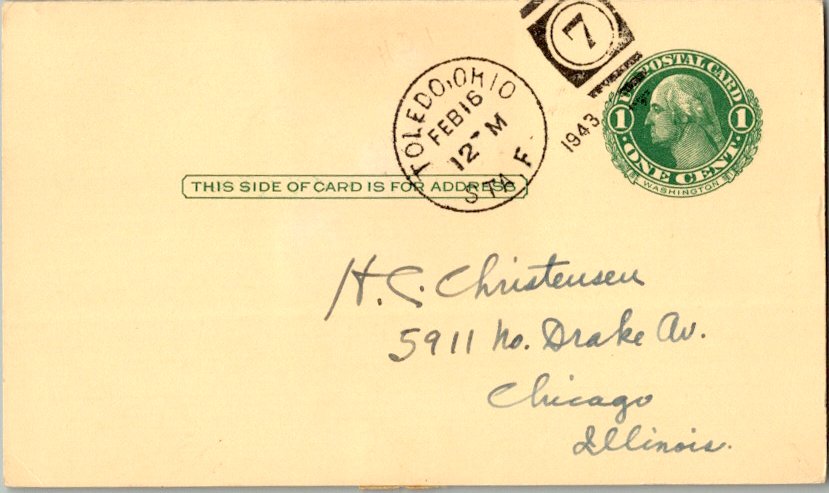 TOLEDO, OHIO
FEB 16
12 M
STA F.
1943
7
U.S. POSTAL CARD
1 1
ONE CENT
WASHINGTON
THIS SIDE OF CARD IS FOR ADDRESS
H. C. Christensen
5911 No. Drake Av.
Chicago
Illinois.